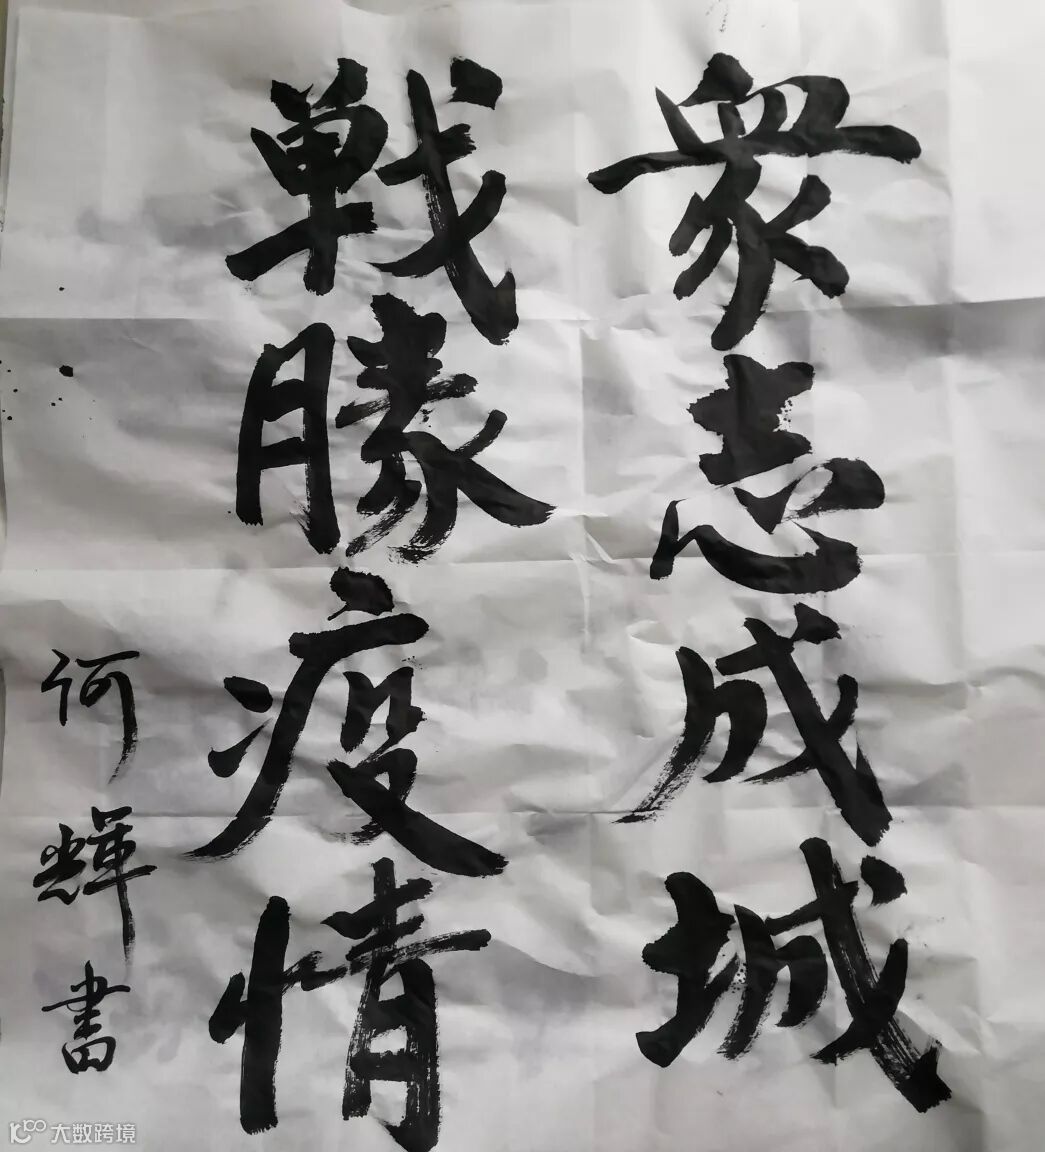 衆志成城
戦勝疫情
何輝書
大数跨境